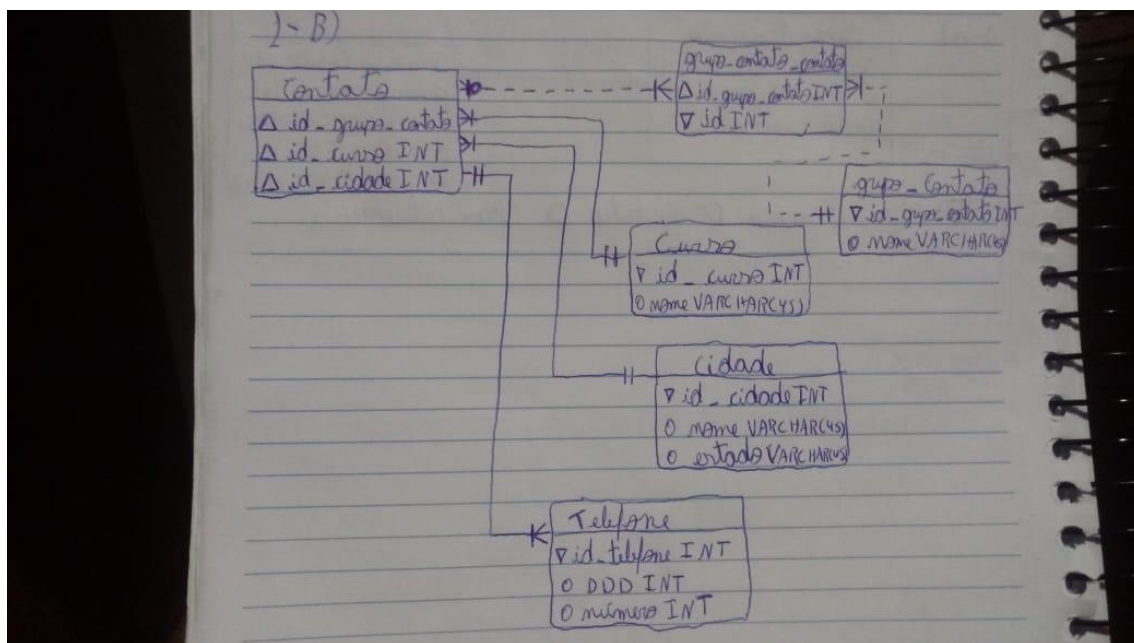 1-B)
Contato
Δ id_grupo_contato
Δ id_curso INT
Δ id_cidade INT
grupo_contato_contato
Δ id_grupo_contato INT
∇ id INT
grupo_Contato
∇ id_grupo_contato INT
O nome VARCHAR(45)
Curso
∇ id_curso INT
O nome VARCHAR(45)
Cidade
∇ id_cidade INT
O nome VARCHAR(45)
O estado VARCHAR(45)
Telefone
∇ id_telefone INT
O DDD INT
O número INT